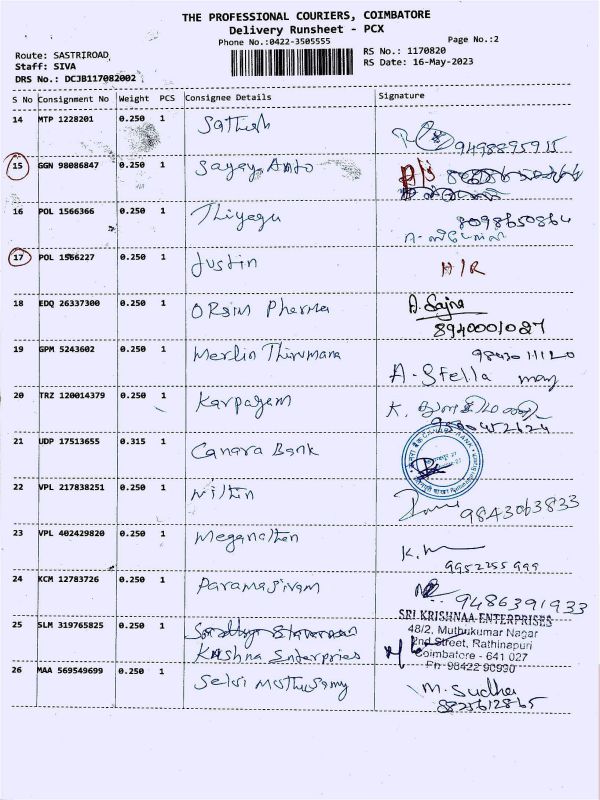 THE PROFESSIONAL COURIERS, COIMBATORE
Delivery Runsheet - PCX
Phone No.:0422-3505555
Page No.:2
Route: SASTRIROAD
Staff: SIVA
DRS No.: DCJB117082002
RS No.: 1170820
RS Date: 16-May-2023
S No Consignment No Weight PCS Consignee Details Signature
14 MTP 1228201 0.250 1 Sathish 9498895915
15 GGN 98086847 0.250 1 Sagay Anto
16 POL 1566366 0.250 1 Thiyagu 8098650864
17 POL 1566227 0.250 1 Justin H/R
18 EDQ 26337300 0.250 1 ORSim Pharma A. Sajna
8940001087
19 GPM 5243602 0.250 1 Merlin Thirumana
A. Stella mary
20 TRZ 120014379 0.250 1 Karpagam K.
21 UDP 17513655 0.315 1 Canara Bank
22 VPL 217838251 0.250 1 9843063833
23 VPL 402429820 0.250 1 Meganathan
9952255999
24 KCM 12783726 0.250 1 Paramasivam 9486391933
25 SLM 319765825 0.250 1
Krishna Enterprises
SRI KRISHNAA ENTERPRISES
48/2, Muthukumar Nagar
2nd Street, Rathinapuri
Coimbatore - 641 027
Ph 98422 90990
26 MAA 569549699 0.250 1 Selvi Muthusamy M. Sudha
8825612865